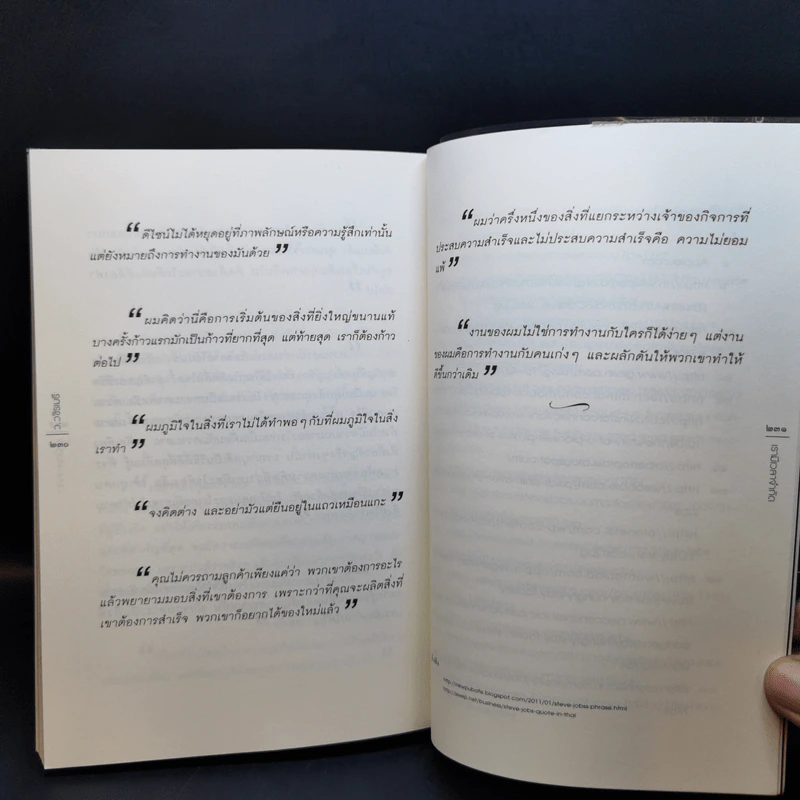 “ดีไซน์ไม่ได้หยุดอยู่ที่ภาพลักษณ์หรือความรู้สึกเท่านั้น
แต่ยังหมายถึงการทำงานของมันด้วย”
“ผมคิดว่านี่คือการเริ่มต้นของสิ่งที่ยิ่งใหญ่ขนานแท้
บางครั้งก้าวแรกมักเป็นก้าวที่ยากที่สุด แต่ท้ายสุด เราก็ต้องก้าว
ต่อไป”
“ผมภูมิใจในสิ่งที่เราไม่ได้ทำพอๆ กับที่ผมภูมิใจในสิ่ง
เราทำ”
“จงคิดต่าง และอย่ามัวแต่ยืนอยู่ในแถวเหมือนแกะ”
“คุณไม่ควรถามลูกค้าเพียงแค่ว่า พวกเขาต้องการอะไร
แล้วพยายามมอบสิ่งที่เขาต้องการ เพราะกว่าที่คุณจะผลิตสิ่งที่
เขาต้องการสำเร็จ พวกเขาก็อยากได้ของใหม่แล้ว”
๒๓๐
“ผมว่าครึ่งหนึ่งของสิ่งที่แยกระหว่างเจ้าของกิจการที่
ประสบความสำเร็จและไม่ประสบความสำเร็จคือ ความไม่ยอม
แพ้”
“งานของผมไม่ใช่การทำงานกับใครก็ได้ง่ายๆ แต่งาน
ของผมคือการทำงานกับคนเก่งๆ และผลักดันให้พวกเขาทำให้
ดีขึ้นกว่าเดิม”
๒๓๑
เรามีเวลาจำกัด